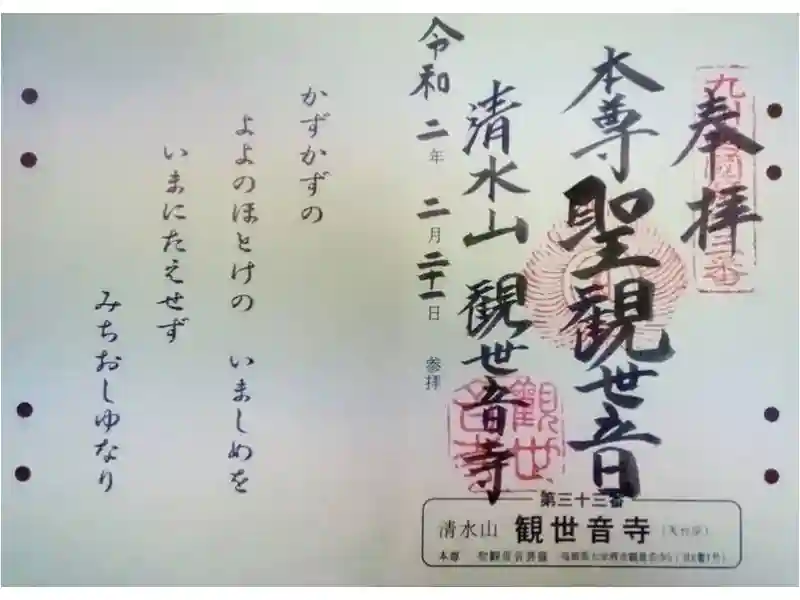 奉拝
本尊
聖観世音
清水山 観世音寺
令和二年 二月二十一日 参拝
かずかずの
よよのほとけの いましめを
いまにたえせず
みちおしゆなり
第三十三番
清水山 観世音寺 (天台宗)
本尊 聖観世音菩薩